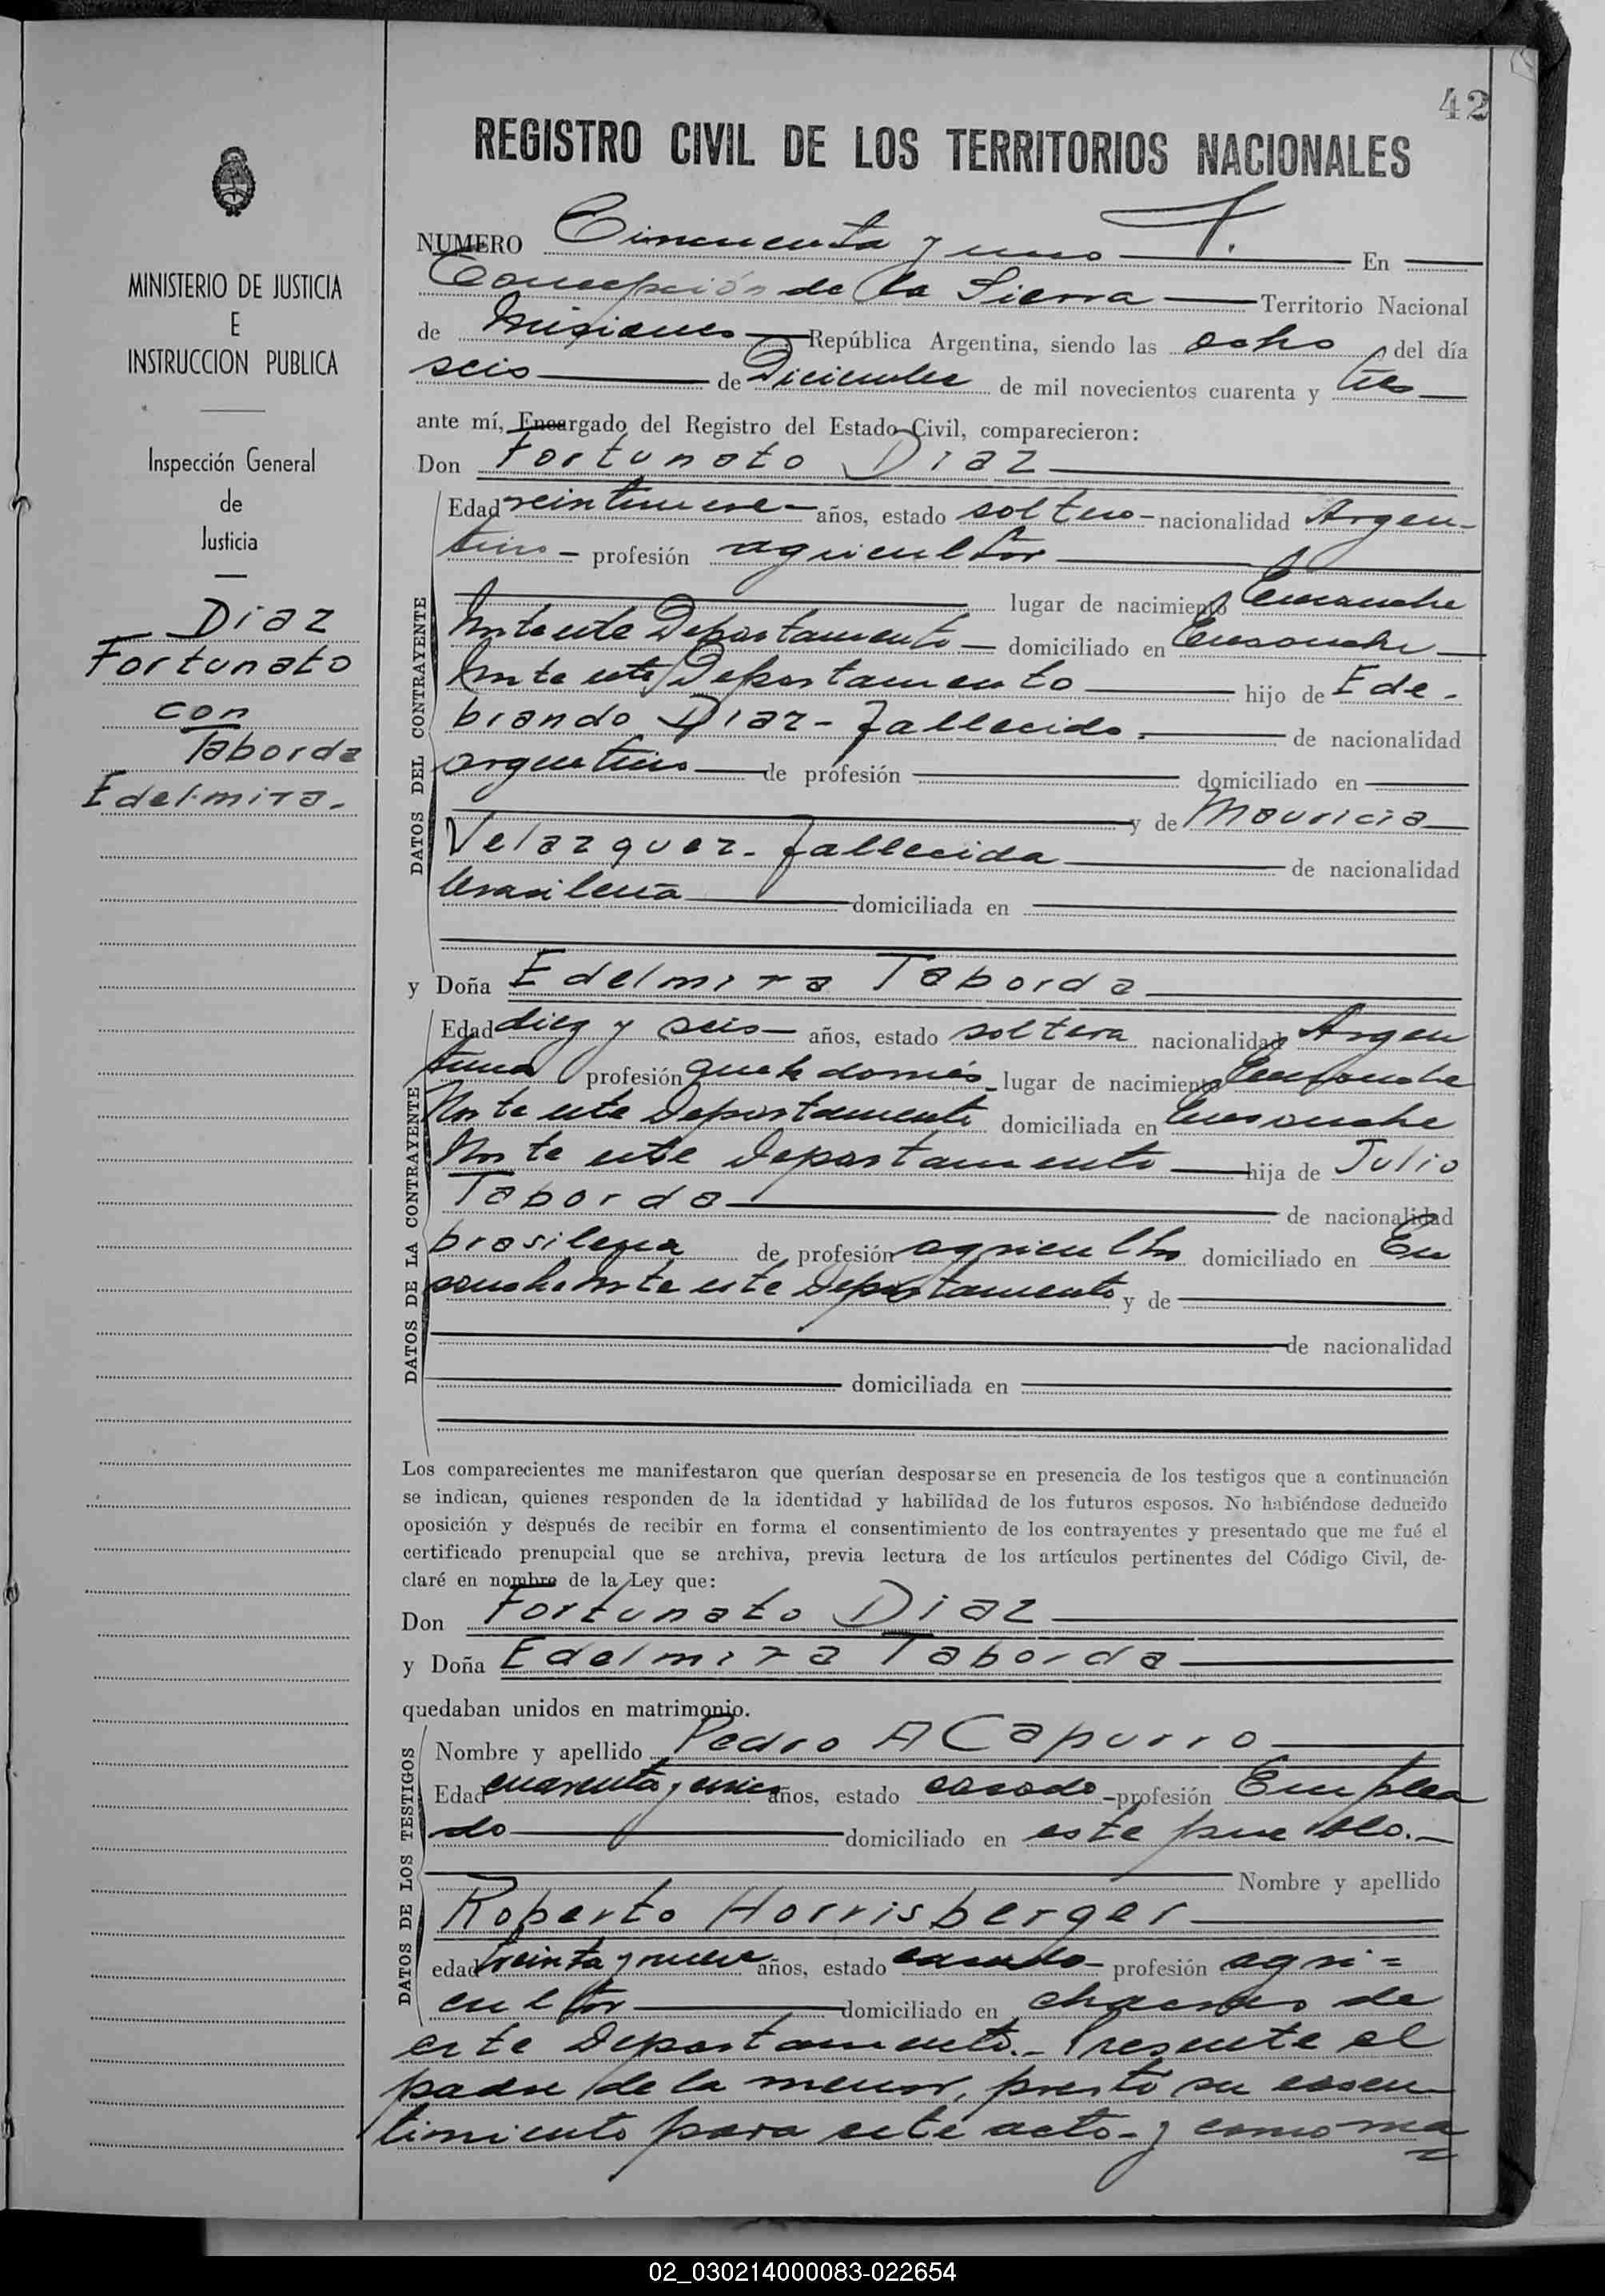 42
REGISTRO CIVIL DE LOS TERRITORIOS NACIONALES
MINISTERIO DE JUSTICIA
E
INSTRUCCION PUBLICA
Inspección General
de
Justicia
Diaz
Fortunato
con
Taborda
Edelmira.
NUMERO Cincuenta y uno En
Concepción de la Sierra Territorio Nacional
de Misiones República Argentina, siendo las ocho del día
seis de Diciembre de mil novecientos cuarenta y tres
ante mí, Encargado del Registro del Estado Civil, comparecieron:
Don Fortunato Diaz
DATOS DEL CONTRAYENTE
Edad veintinueve años, estado soltero nacionalidad Argen-
tino profesión agricultor
lugar de nacimiento Ensanche
Norte este Departamento domiciliado en Ensanche
Norte este Departamento hijo de Ede-
brando Diaz - fallecido. de nacionalidad
argentino de profesión domiciliado en
y de Mauricia
Velazquez. fallecida de nacionalidad
brasileña domiciliada en
y Doña Edelmira Taborda
DATOS DE LA CONTRAYENTE
Edad diez y seis años, estado soltera nacionalidad Argen
tina profesión queh domés lugar de nacimiento Ensanche
Norte este Departamento domiciliada en Ensanche
Norte este Departamento hija de Julio
Taborda de nacionalidad
brasilera de profesión agricultor domiciliado en En
sanche Norte este Departamento y de
de nacionalidad
domiciliada en
Los comparecientes me manifestaron que querían desposarse en presencia de los testigos que a continuación
se indican, quienes responden de la identidad y habilidad de los futuros esposos. No habiéndose deducido
oposición y después de recibir en forma el consentimiento de los contrayentes y presentado que me fué el
certificado prenupcial que se archiva, previa lectura de los artículos pertinentes del Código Civil, de-
claré en nombre de la Ley que:
Don Fortunato Diaz
y Doña Edelmira Taborda
quedaban unidos en matrimonio.
DATOS DE LOS TESTIGOS
Nombre y apellido Pedro A Capurro
Edad cuarenta y años, estado casado profesión Emplea
do domiciliado en este pueblo.
Nombre y apellido
Roberto Horrisberger
edad treinta y nueve años, estado casado profesión agri=
cultor domiciliado en chacras de
este Departamento.- Presente el
padre de la menor, prestó su
timiento para este acto- y como ma
02_030214000083-022654